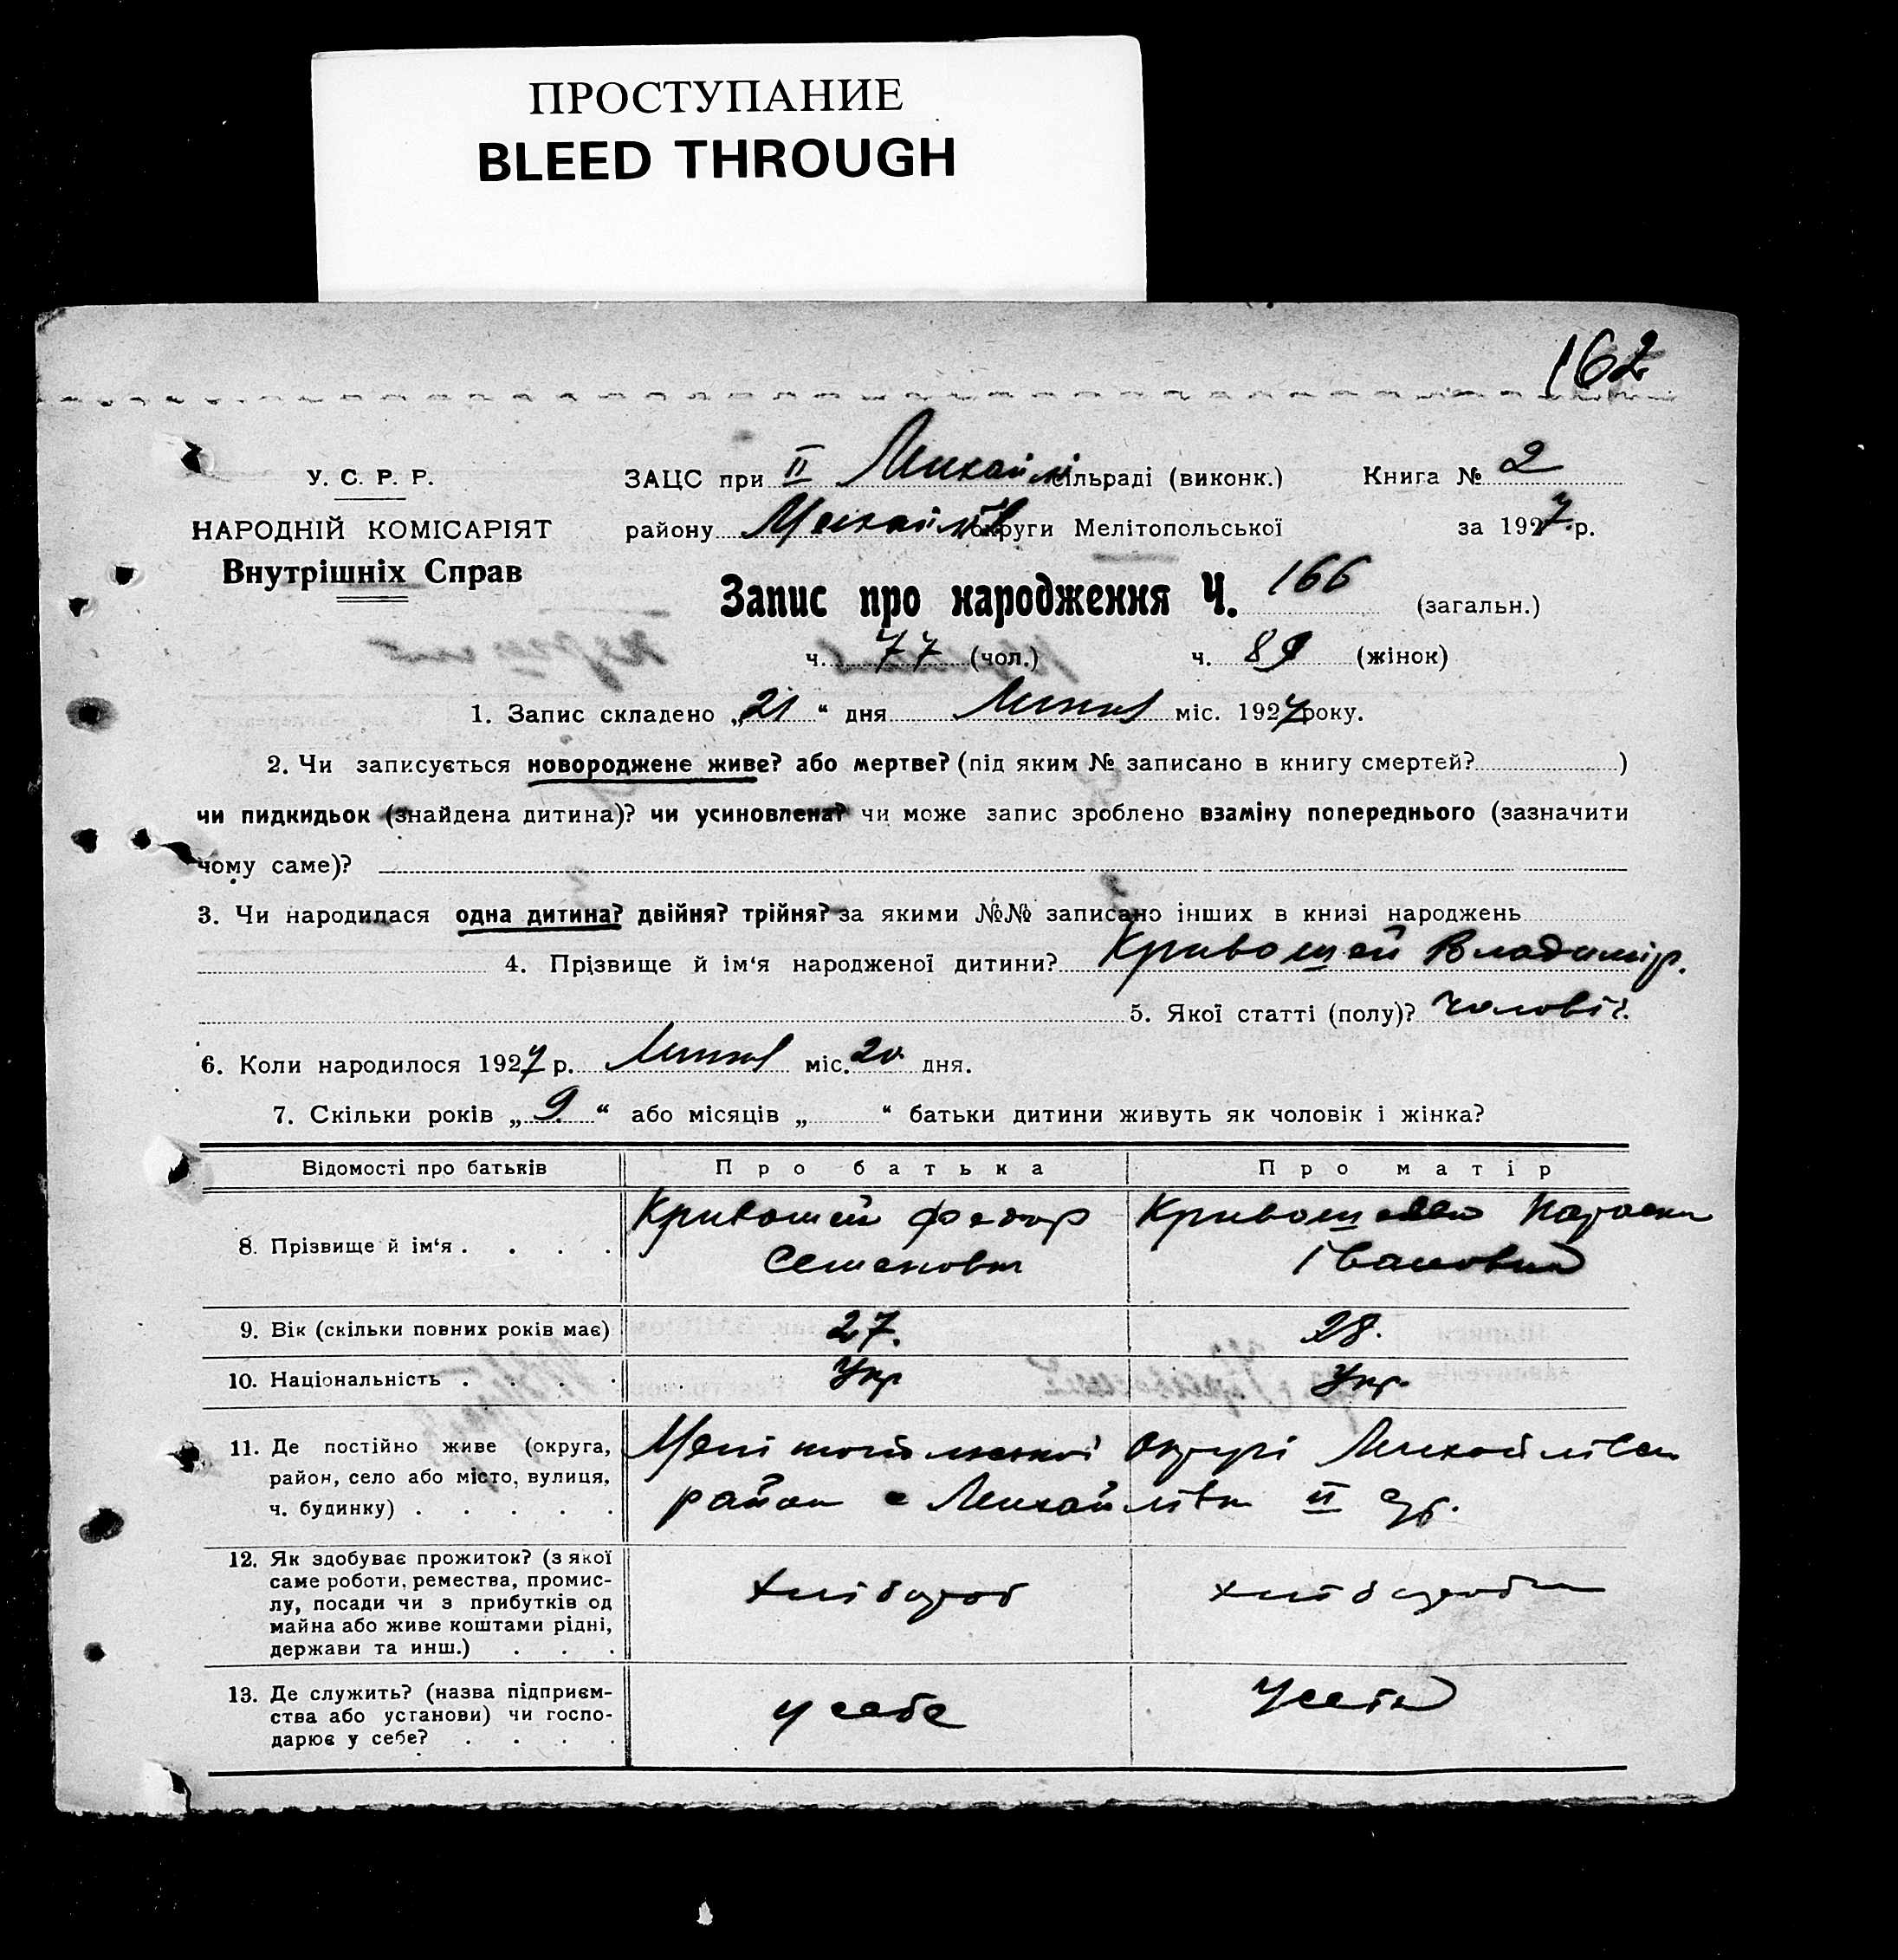 ПРОСТУПАНИЕ
BLEED THROUGH
162
У. С. Р. Р.
НАРОДНІЙ КОМІСАРІЯТ
Внутрішніх Справ
ЗАЦС при II Михайл сільраді (виконк.) Книга № 2
району Михайлів округи Мелітопольської за 1927 р.
Запис про народження Ч. 166 (загальн.)
ч. 77 (чол.) ч. 89 (жінок)
1. Запис складено „21“ дня Липня міс. 1927 року.
2. Чи записується новороджене живе? або мертве? (під яким № записано в книгу смертей? )
чи пидкидьок (знайдена дитина)? чи усиновлена? чи може запис зроблено взаміну попереднього (зазначити
чому саме)?
3. Чи народилася одна дитина? двійня? трійня? за якими №№ записано інших в книзі народжень
4. Прізвище й ім‘я народженої дитини? Кривошей Владимір.
5. Якої статті (полу)? чоловіч.
6. Коли народилося 1927 р. Липня міс. 20 дня.
7. Скільки років „9“ або місяців „ “ батьки дитини живуть як чоловік і жінка?
Відомості про батьків Про батька Про матір
8. Прізвище й ім‘я . . . . Кривошей Федор Семенович Кривошея Параска Івановна
9. Вік (скільки повних років має) 27. 28.
10. Національність . . . . Укр Укр.
11. Де постійно живе (округа, район, село або місто, вулиця, ч. будинку) . . . . . Мелітопольської округи Михайлівськ
район с Михайлівка II
12. Як здобуває прожиток? (з якої саме роботи, ремества, промислу, посади чи з прибутків од майна або живе коштами рідні, держави та инш.) . . . хлібороб хліборобка
13. Де служить? (назва підприємства або установи) чи господарює у себе? . . . . у себе у себе